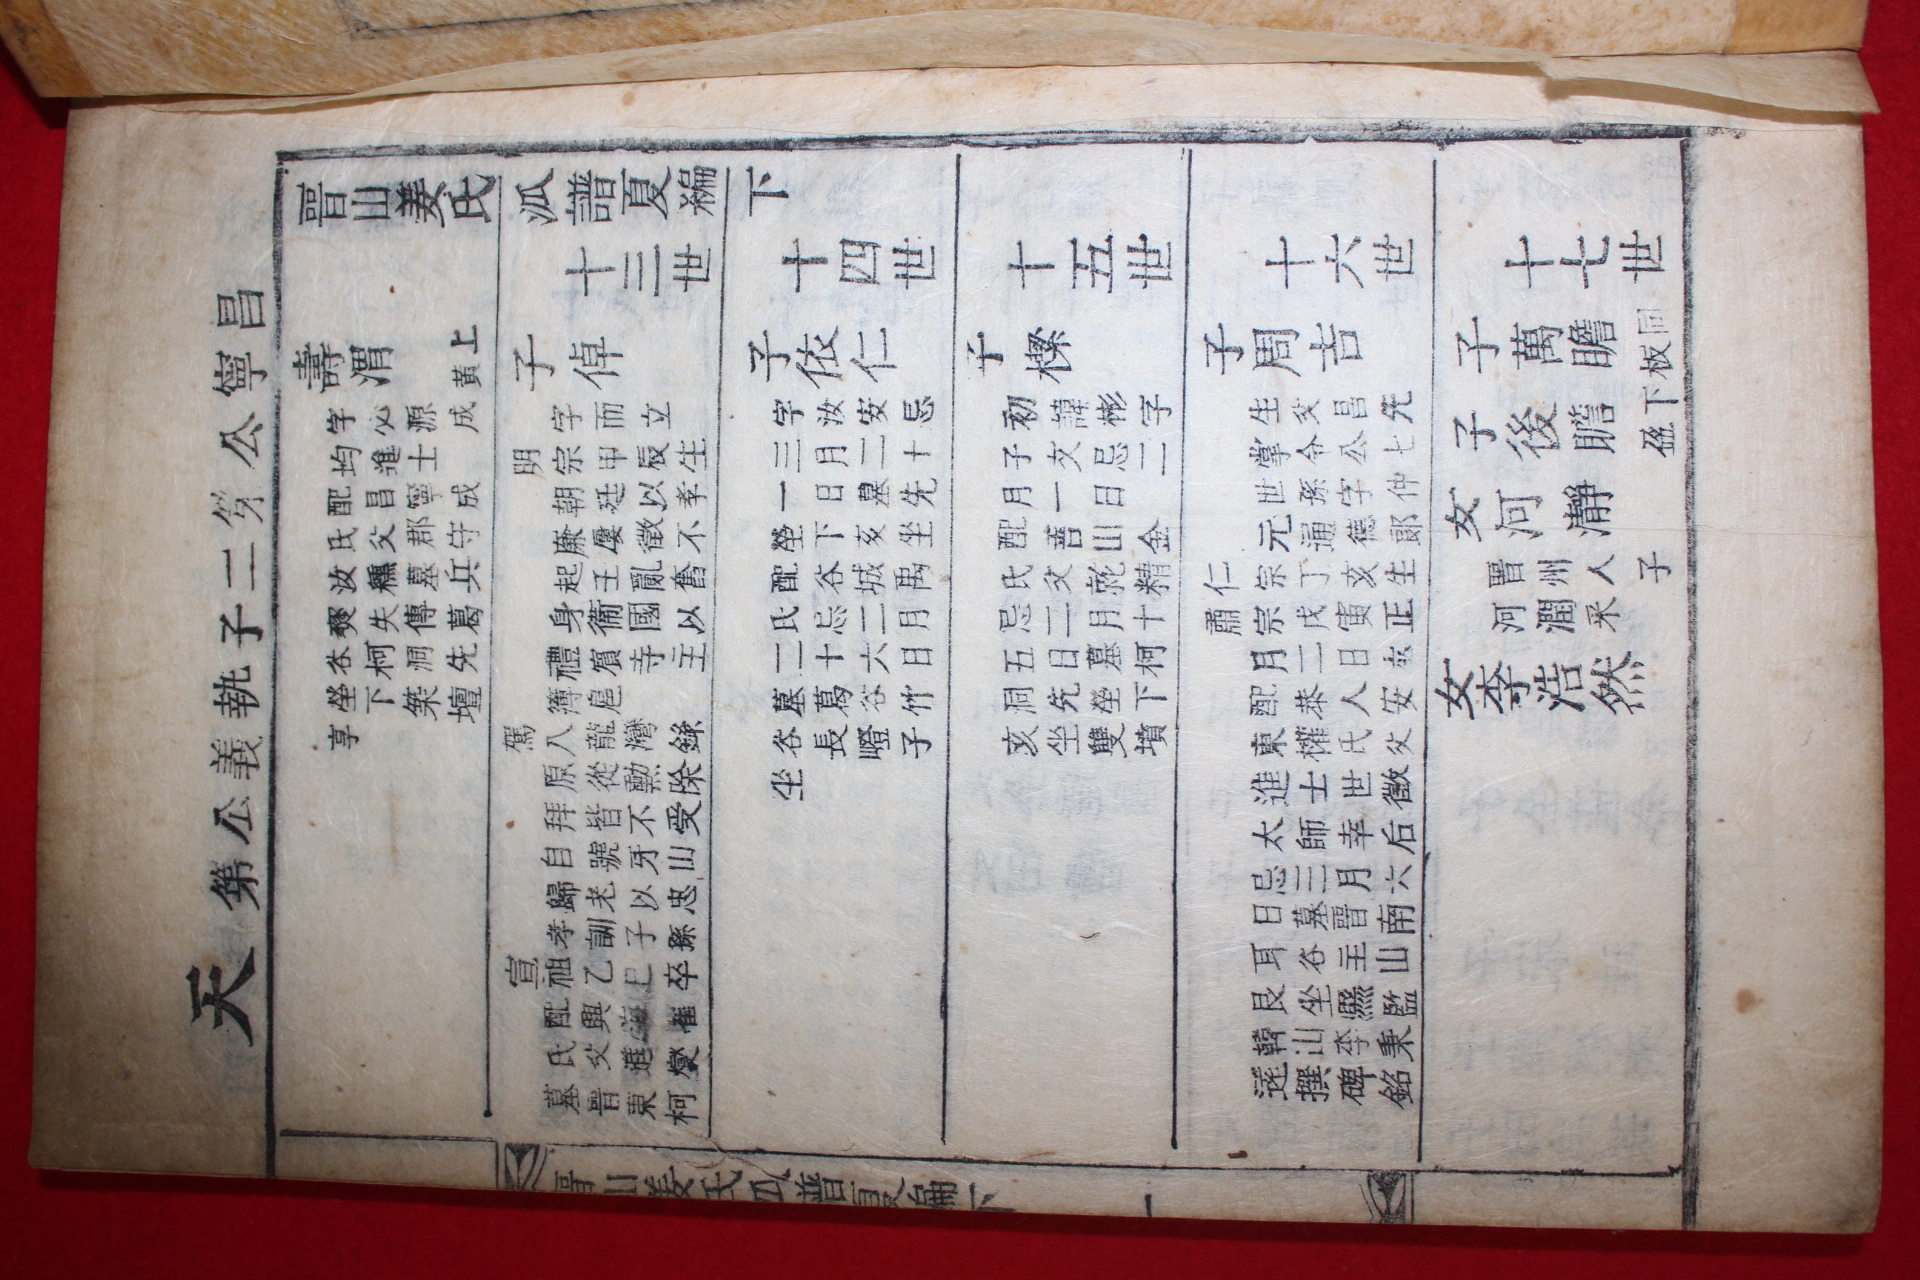 昌寧公第二子執義公第
天
晋山姜氏派譜夏編下
壽渭
上
黃
字必源成
均進士
配昌寧成
氏父郡守
汝櫄墓兵
燹失傳葛
谷柯洞先
塋下築壇
享
十三世
子倬
字而立
明宗甲辰生
朝廷以孝
廉屢徵不
起壬亂奮
身衞國以
禮賓寺主
簿扈
駕八龍灣錄
原從勲除
拜皆不受
自號牙山
歸老以忠
孝訓子孫
宣祖乙巳卒
配興海崔
氏父進燮
墓晋東柯
十四世
子依仁
字汝安忌
三月二十
一日墓先
塋下亥坐
配谷城禹
氏忌二月
二十六日
墓葛谷竹
谷長嶝子
坐
十五世
子樑
初諱彬字
子文忌二
月一日
配善山金
氏父就精
忌二月十
五日墓柯
洞先塋下
亥坐雙墳
十六世
子周吉
生父昌先
掌令公七
世孫字仲
元通德郞
仁宗丁亥生
肅宗戊寅正
月二日卒
配恭人安
東權氏父
進士世徵
太師幸后
忌三月六
日墓晋南
耳谷主山
艮坐縣監
韓山李秉
遠撰碑銘
十七世
子萬瞻
同板
子後瞻
下盈
女河瀞
晋州人子
河潤采
女李浩然
晋山姜氏派譜夏編下
一